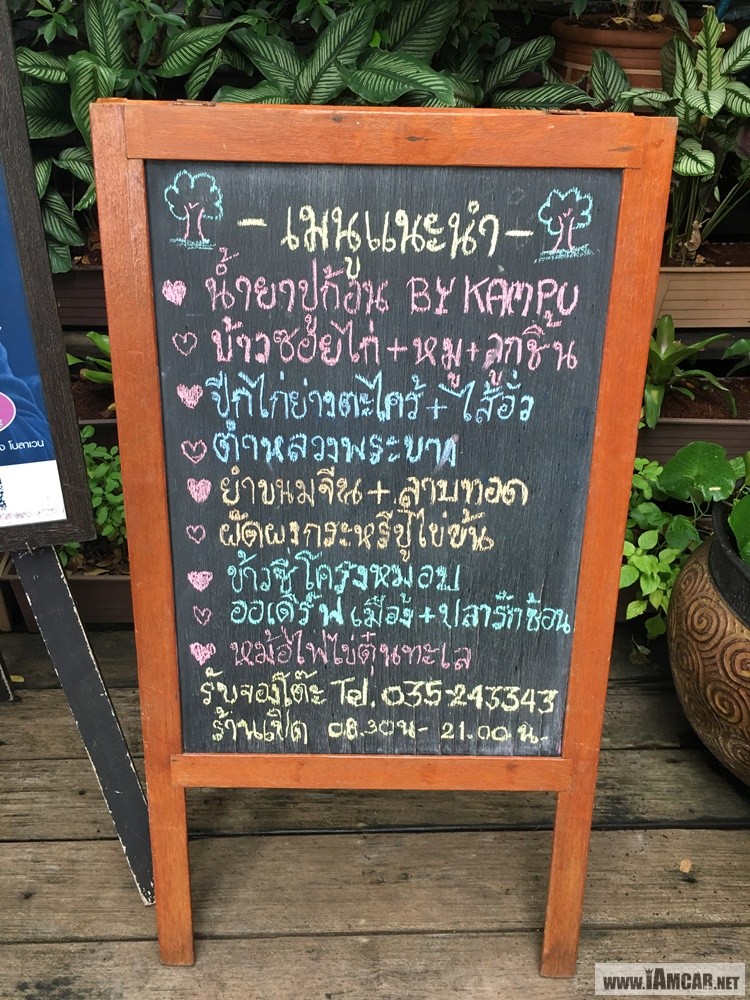 - เมนูแนะนำ -
น้ำยาปูก้อน BY KAMPU
ข้าวซอยไก่+หมู+ลูกชิ้น
ปีกไก่ย่างตะไคร้+ไส้อั่ว
ตำหลวงพระบาง
ยำขนมจีน+ลาบทอด
ผัดผงกระหรี่ปูไข่ข้น
ข้าวซี่โครงหมูอบ
ออเดิร์ฟเมือง+ปลารักซ้อน
หม้อไฟไข่ตุ๋นทะเล
รับจองโต๊ะ Tel. 035-243343
ร้านเปิด 08.30น - 21.00 น.
โบลาเวน
www.iAMCAR.NET